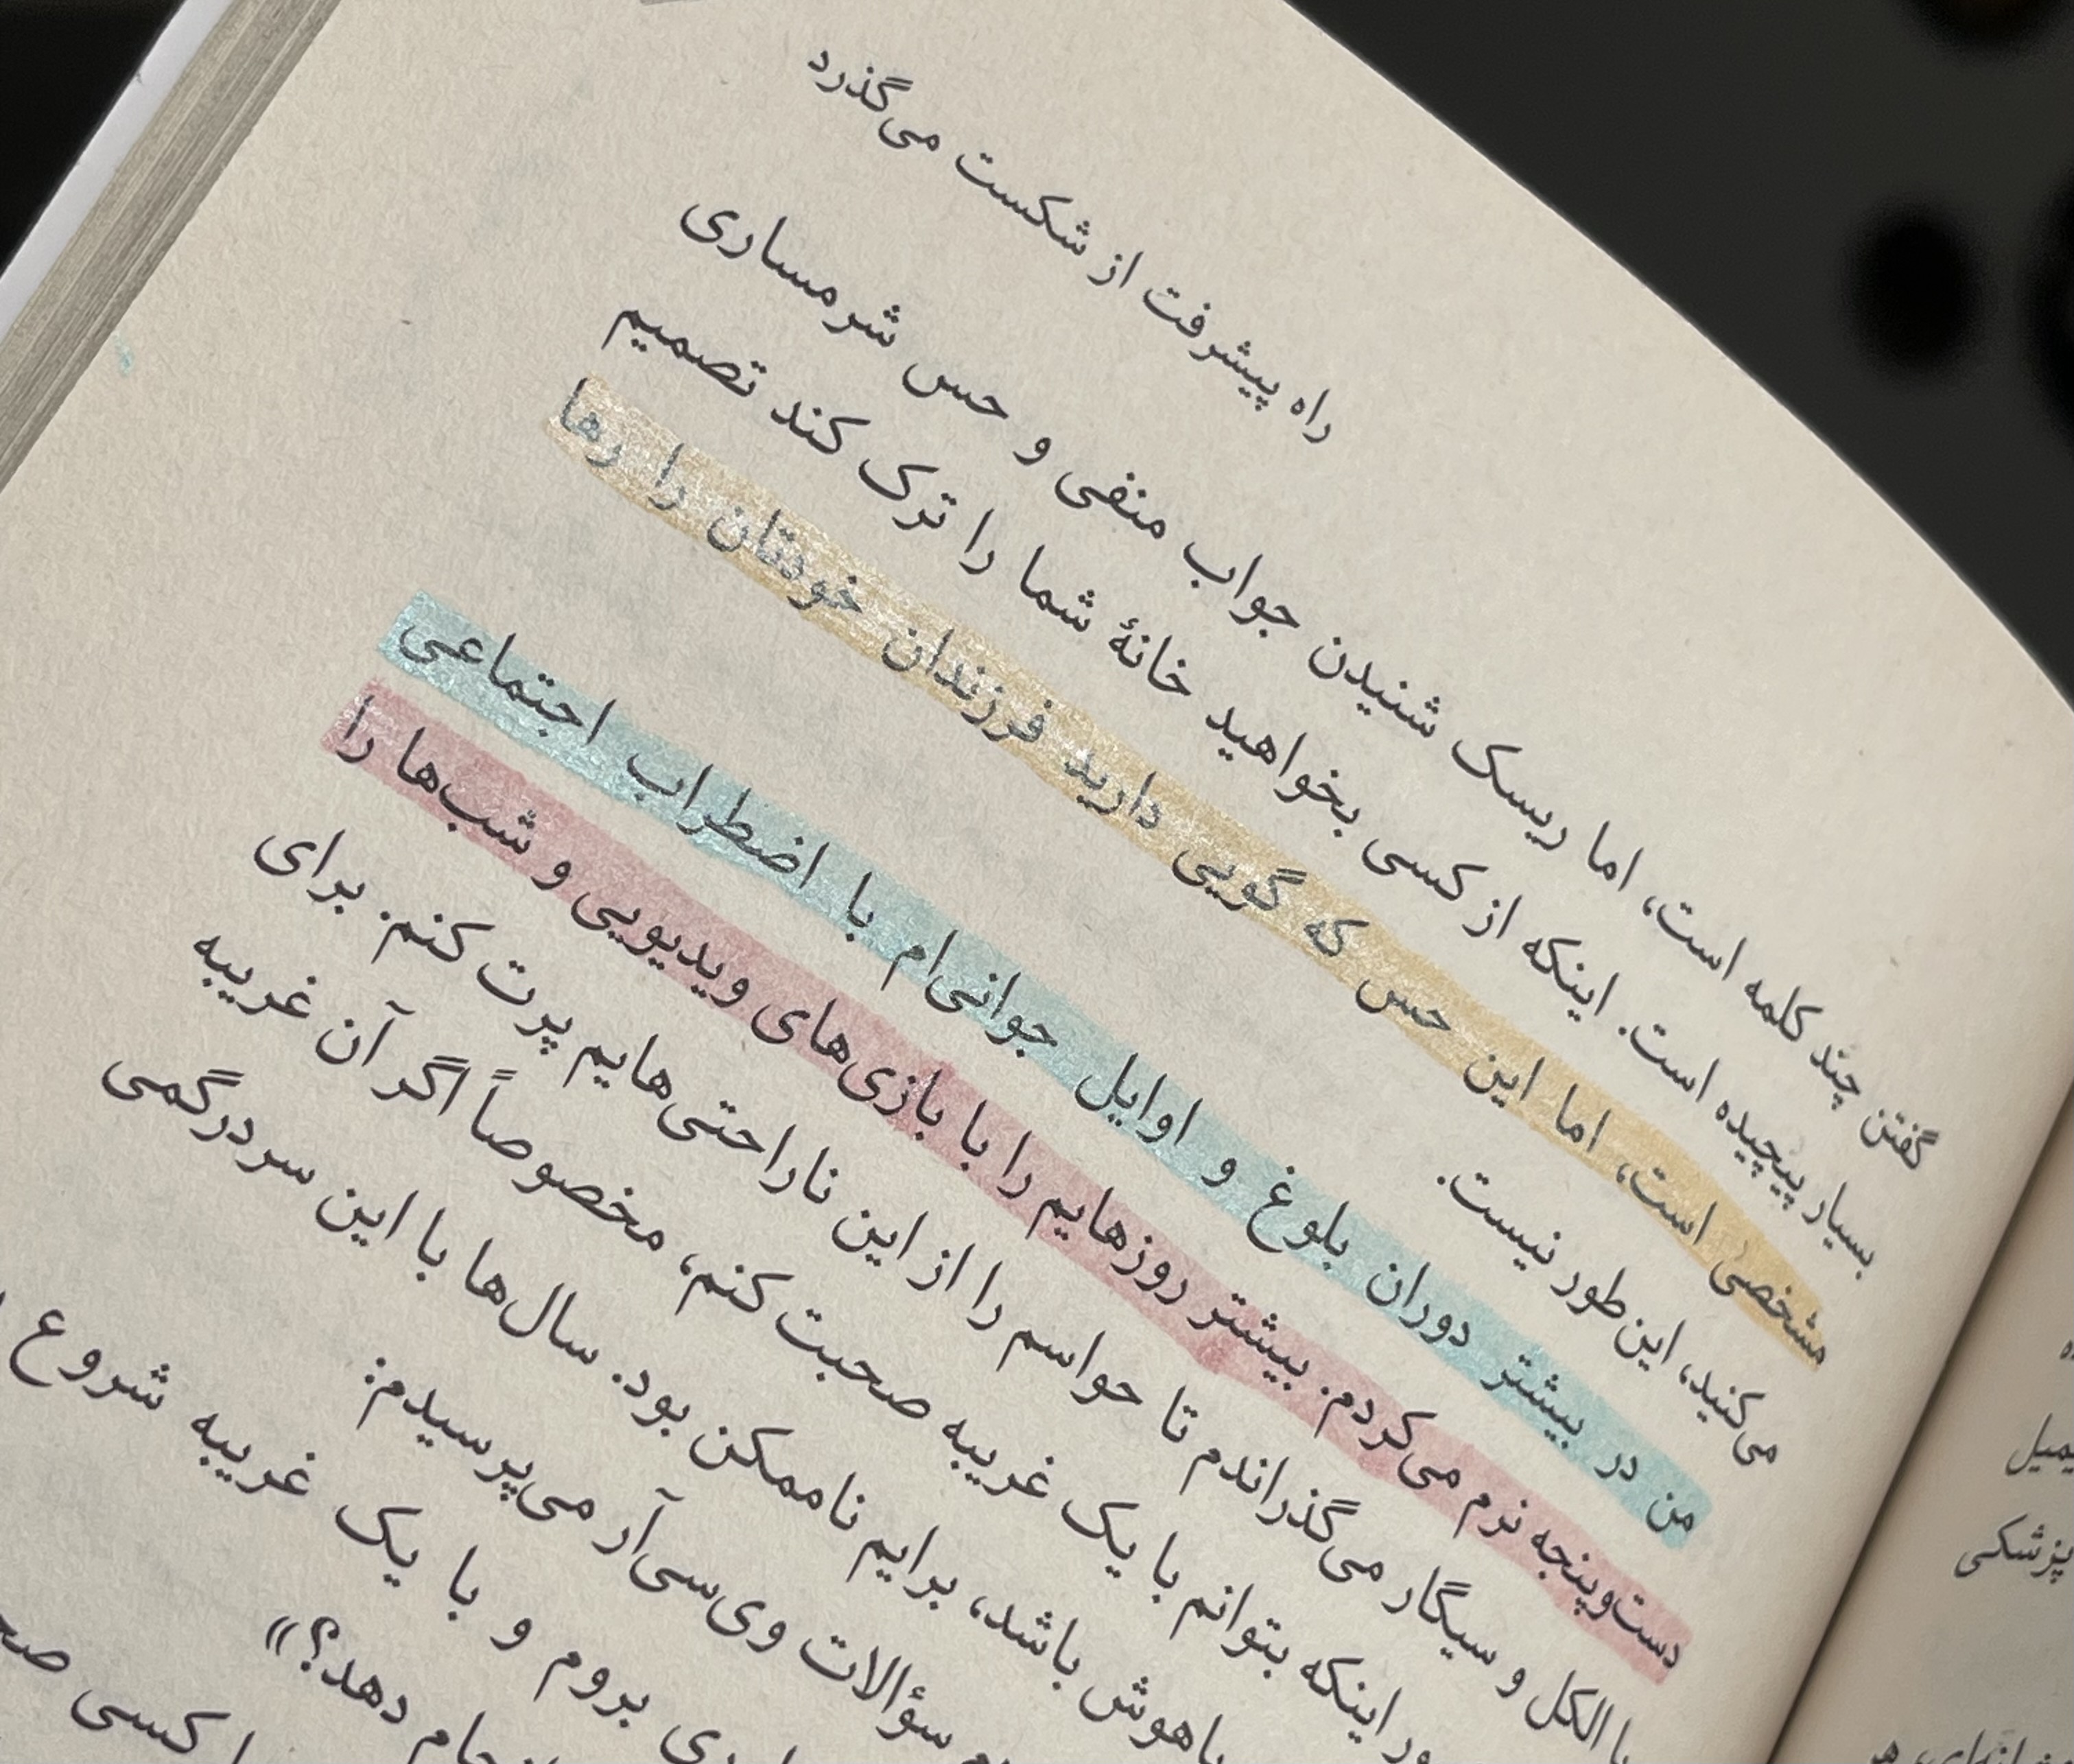 راه پیشرفت از شکست می‌گذرد
گفتن چند کلمه است، اما ریسک شنیدن جواب منفی و حس شرمساری
بسیار پیچیده است. اینکه از کسی بخواهید خانهٔ شما را ترک کند تصمیم
مشخصی است، اما این حس که گویی دارید فرزندان خودتان را رها
می‌کنید، این‌طور نیست.
من در بیشتر دوران بلوغ و اوایل جوانی‌ام با اضطراب اجتماعی
دست‌وپنجه نرم می‌کردم. بیشتر روزهایم را با بازی‌های ویدیویی و شب‌ها را
با الکل و سیگار می‌گذراندم تا حواسم را از این ناراحتی‌هایم پرت کنم. برای
اینکه بتوانم با یک غریبه صحبت کنم، مخصوصاً اگر آن غریبه
باهوش باشد، برایم ناممکن بود. سال‌ها با این سردرگمی
سؤالات وی‌سی‌آر می‌پرسیدم:
بروم و با یک غریبه شروع
دهد؟»
کسی
پزشکی